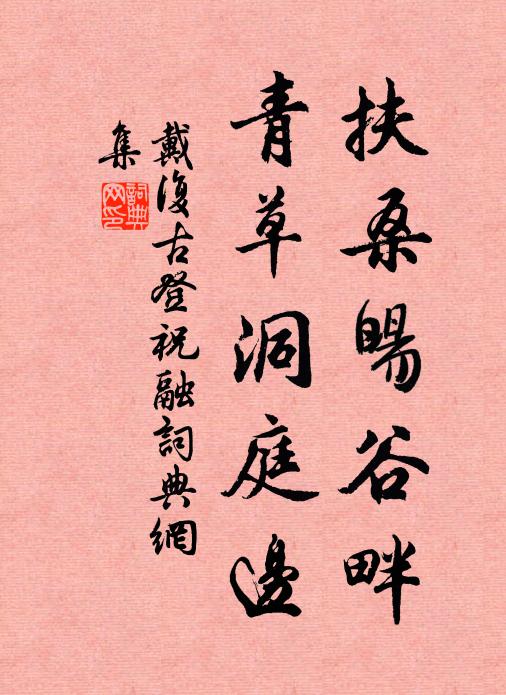 扶桑暘谷畔
青草洞庭邊
戴復古登祝融詞典網
集
詞典
网印